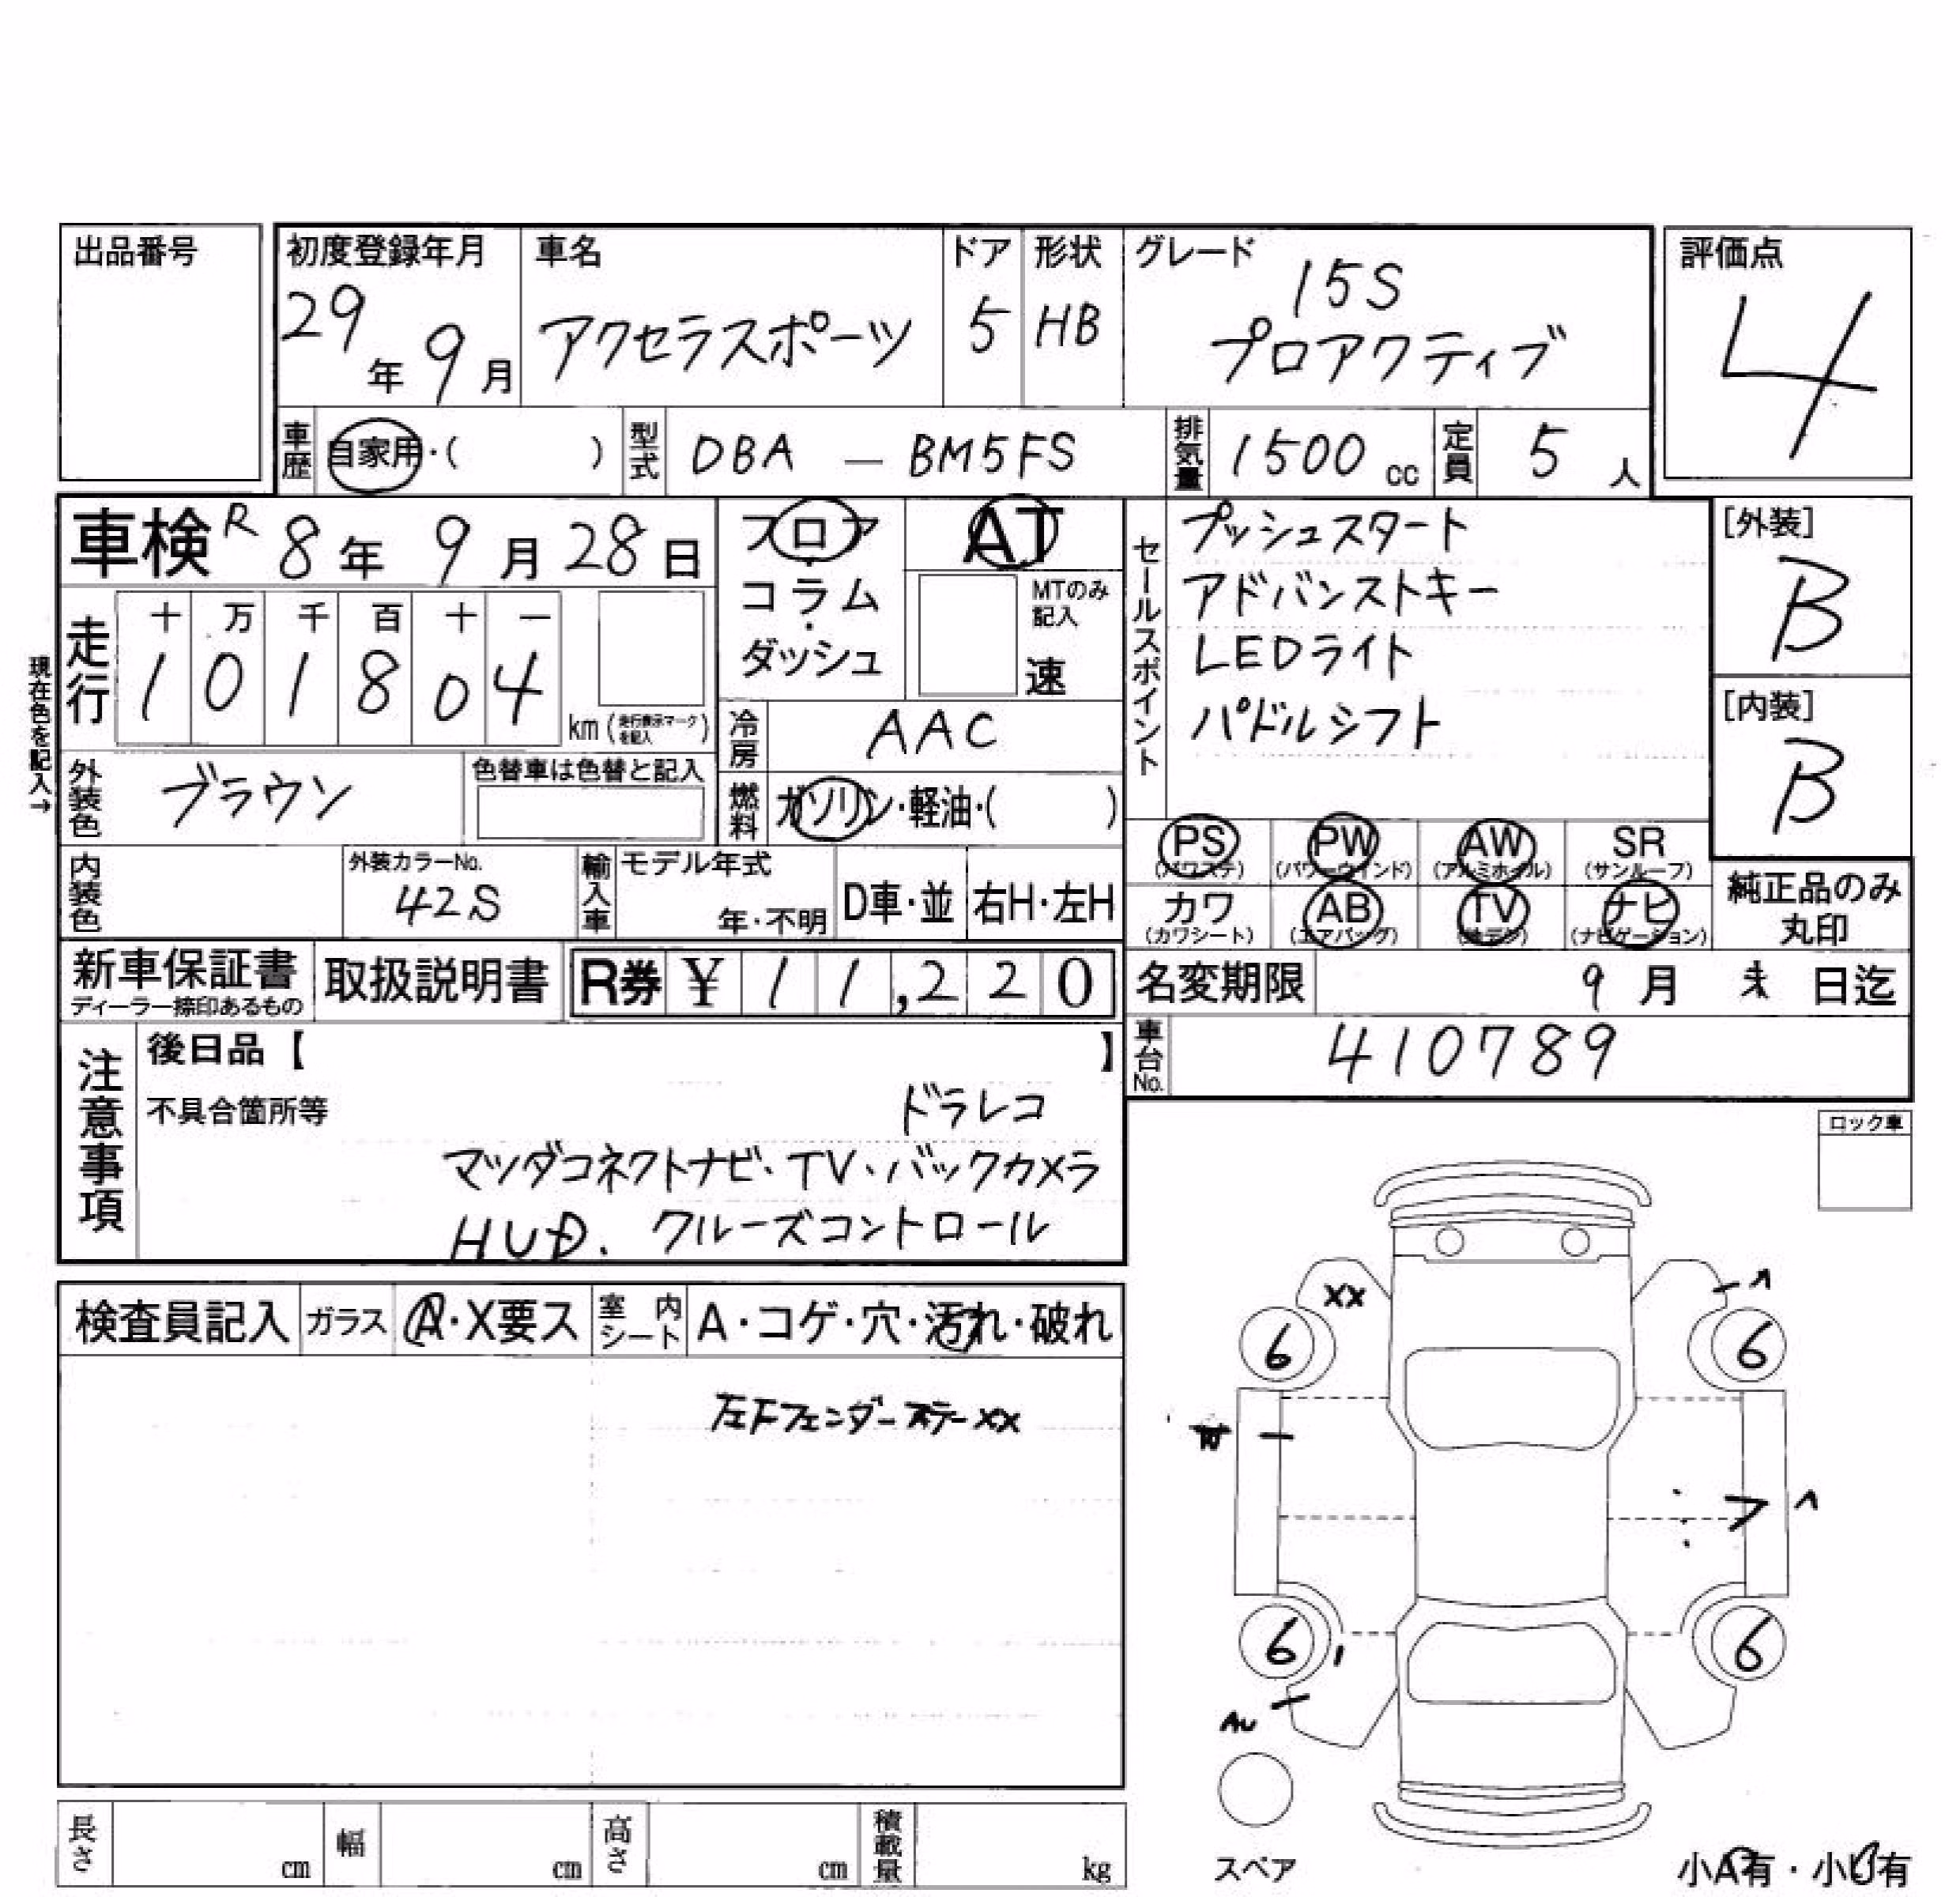 出品番号
初度登録年月 29年 9月
車名 アクセラスポーツ
ドア 5
形状 HB
グレード 15S プロアクティブ
評価点 4
車歴 自家用・( )
型式 DBA — BM5FS
排気量 1500 cc
定員 5 人
車検 R 8年 9月 28日
フロア・コラム・ダッシュ
AT
MTのみ記入 速
セールスポイント
プッシュスタート
アドバンストキー
LEDライト
パドルシフト
[外装] B
[内装] B
現在色を記入→
走行 十 万 千 百 十 一
1 0 1 8 0 4 km (走行表示マークを記入)
冷房 AAC
外装色 ブラウン
色替車は色替と記入
燃料 ガソリン・軽油・( )
PS (パワステ) PW (パワーウインド) AW (アルミホイル) SR (サンルーフ)
カワ (カワシート) AB (エアバッグ) TV ナビ (ナビゲーション)
純正品のみ丸印
内装色
外装カラーNo. 42S
輸入車 モデル年式 年・不明 D車・並 右H・左H
新車保証書 ディーラー捺印あるもの
取扱説明書
R券 ¥ 11,220
名変期限 9月 末 日迄
車台No. 410789
注意事項
後日品【 】
不具合箇所等
ドラレコ
マツダコネクトナビ・TV・バックカメラ
HUD. クルーズコントロール
ロック車
検査員記入 ガラス A・X要ス 室内シート A・コゲ・穴・汚れ・破れ
左Fフェンダーステーxx
xx
6 6
6 6
AU
スペア
長さ cm 幅 cm 高さ cm 積載量 kg
小A有・小U有